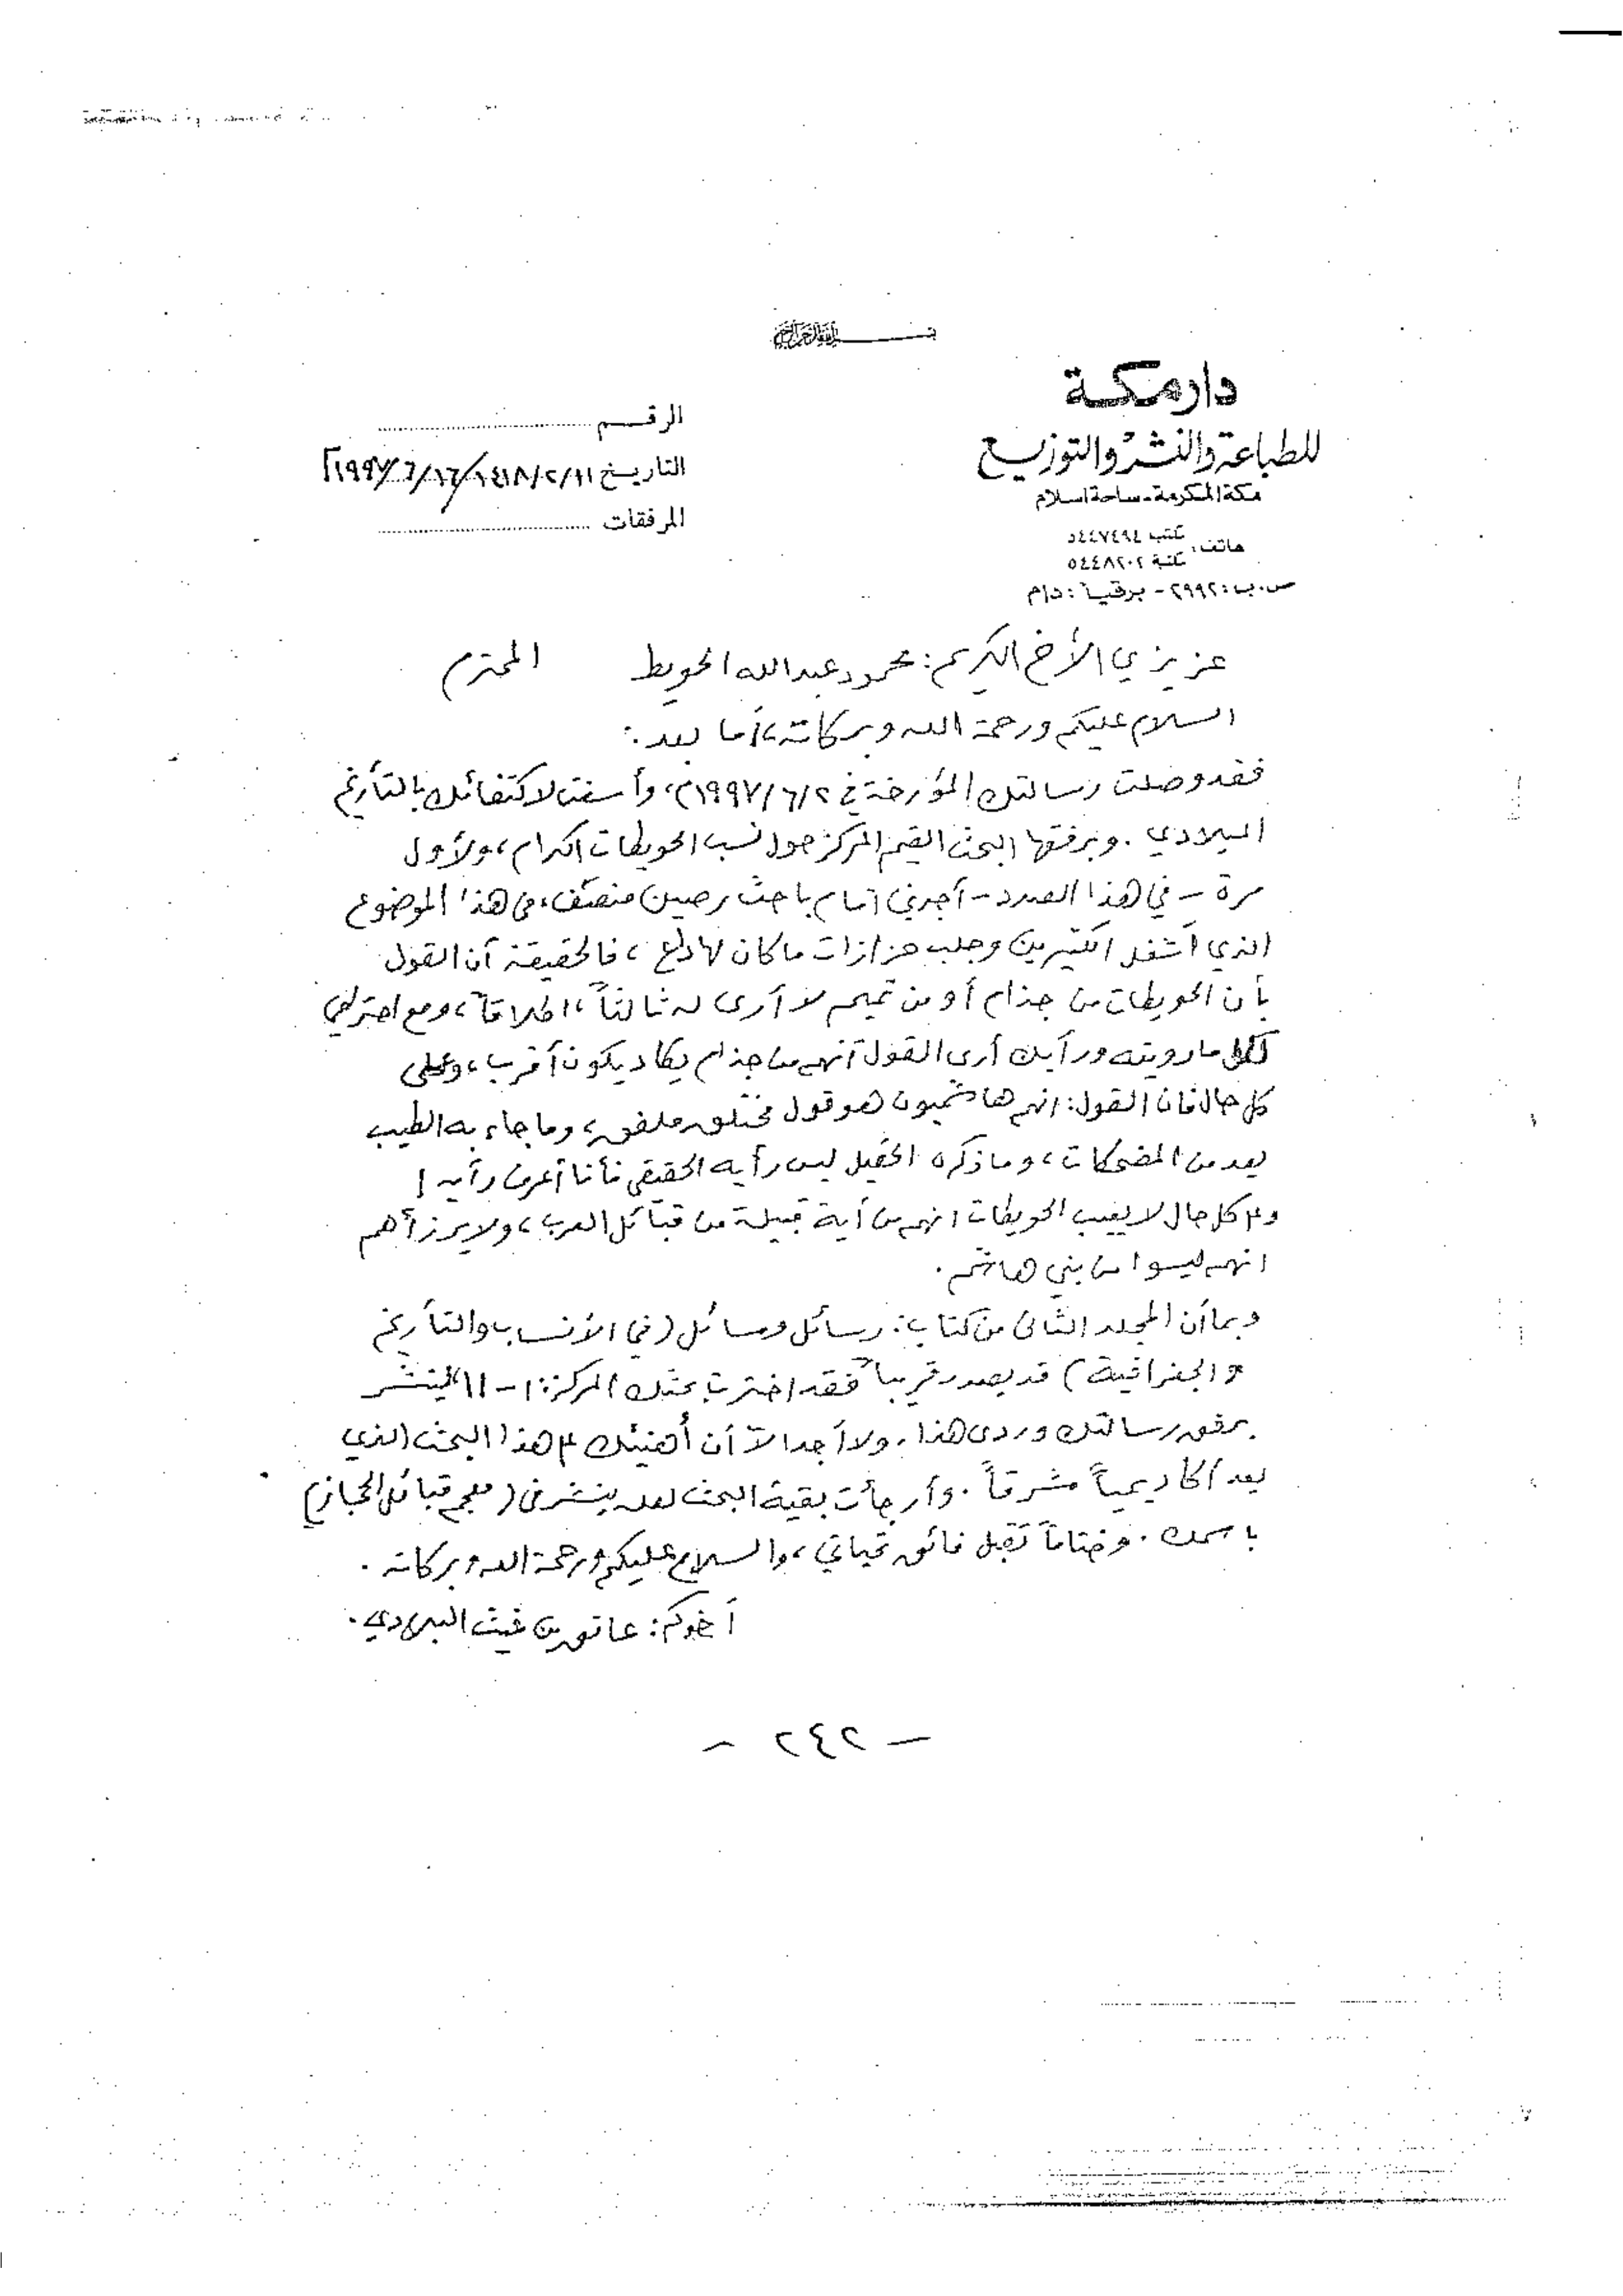 بسم الله الرحمن الرحيم
دار مكة
للطباعة والنشر والتوزيع
مكة المكرمة - ساحة اسلام
هاتف: مكتب ٥٤٤٧٤٩٤
مكتبة ٥٤٤٨٢٠٢
ص.ب: ٢٩٩٢ - برقياً: دام
الرقم
التاريخ ١١/٢/١٤١٨/١٦/٦/١٩٩٧م
المرفقات
عزيزي الأخ الكريم: محمود عبدالله الحويط المحترم
السلام عليكم ورحمة الله وبركاته، أما بعد:
فقد وصلت رسالتك المؤرخة في ٢/٦/١٩٩٧م، وأسفت لاكتفائك بالتأريخ
الميلادي. وبرفقها البحث القيم المركز حول نسب الحويطات الكرام، ولأول
مرة - في هذا الصدد - أجدني أمام باحث رصين منصف، في هذا الموضوع
الذي أشغل الكثيرين وجلب حزازات ما كان لها داع، فالحقيقة أن القول
بأن الحويطات من جذام أو من تميم لا أرى له ثالثاً، اطلاقاً، ومع احترامي
لكل ما رويته ورأيك أرى القول أنهم من جذام يكاد يكون أقرب، وعلى
كل حال فان القول: انهم هاشميون هو قول مختلق ملفق، وما جاء به الطيب
يعد من المضحكات، وما ذكره الحقيل ليس رأيه الحقيقي فأنا أعرف رأيه!
وع كل حال لا يعيب الحويطات انهم من أية قبيلة من قبائل العرب، ولا يرزأهم
انهم ليسوا من بني هاشم.
وبما أن المجلد الثاني من كتاب: رسائل ومسائل (في الأنساب والتأريخ
والجغرافية) قد يصدر قريباً فقد اخترت بحثك المركز: ١-١١ لينشر
برفق رسالتك وردي هذا. ولا أجد الا أن أهنئك ع هذا البحث الذي
يعد أكاديمياً مشرقاً. وأرجأت بقية البحث لعله ينشر في (معجم قبائل الحجاز)
باسمك. وختاماً تقبل فائق تحياتي، والسلام عليكم ورحمة الله وبركاته.
أخوكم: عاتق بن غيث البلادي.
- ٢٤٢ -